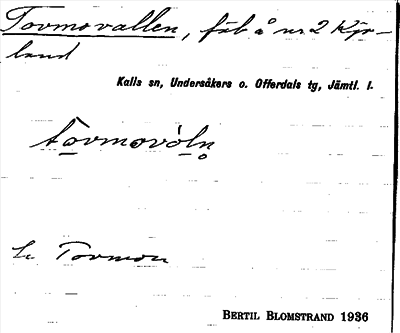 Tovmovallen, fäb å nr 2 Kjo-
land
Kalls sn, Undersåkers o. Offerdals tg, Jämtl. l.
tovmovòln̥
Se Tovmon
BERTIL BLOMSTRAND 1936